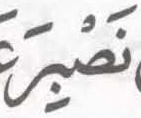 نَصْبِرَ